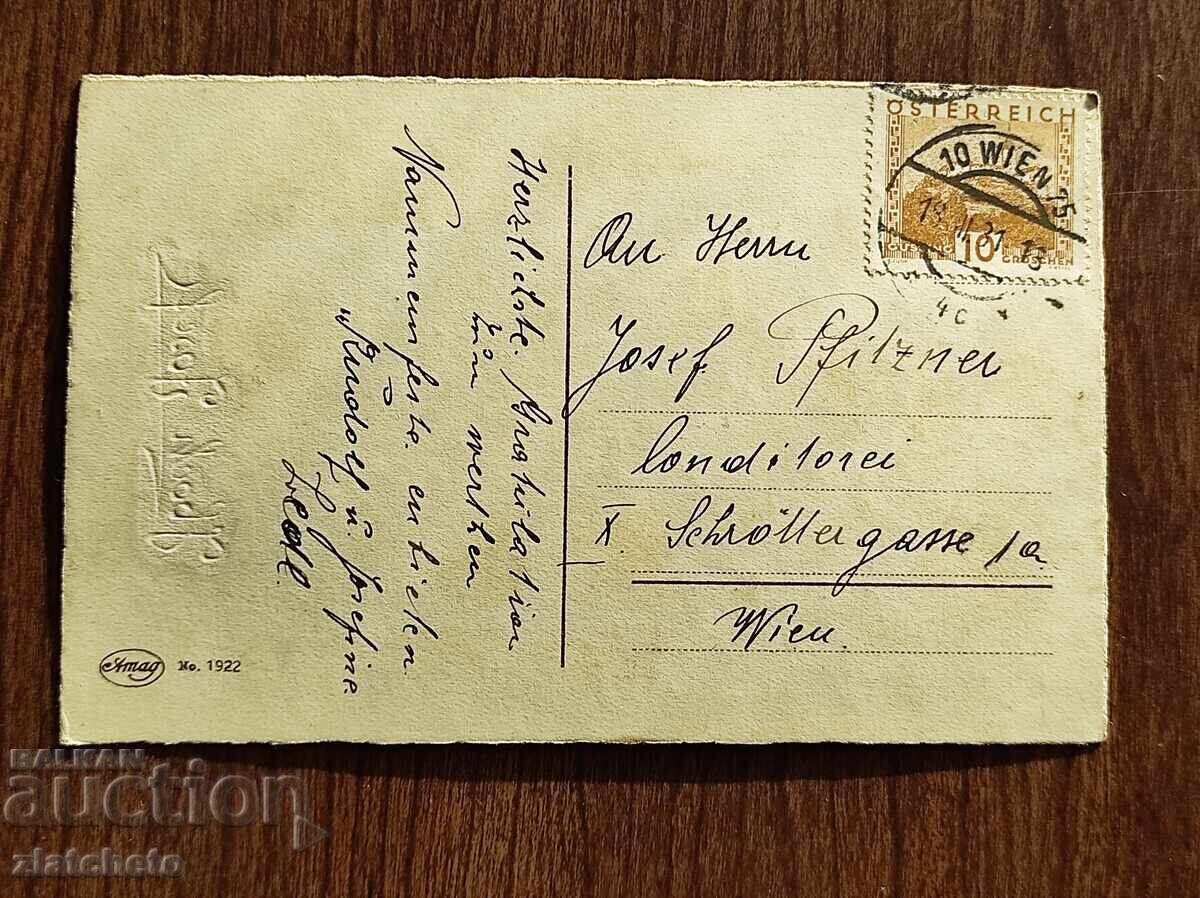 Herzlichste Gratulation
zum werthen
Namensfeste entbieten
Rudolf u. Josefine
Ledl.
Amag No. 1922
ÖSTERREICH
10 WIEN 75
10
GROSCHEN
4c *
An Herrn
Josef Pfitzner
Conditorei
X. Schröttergasse 1a
Wien
BALKAN
auction
zlatcheto